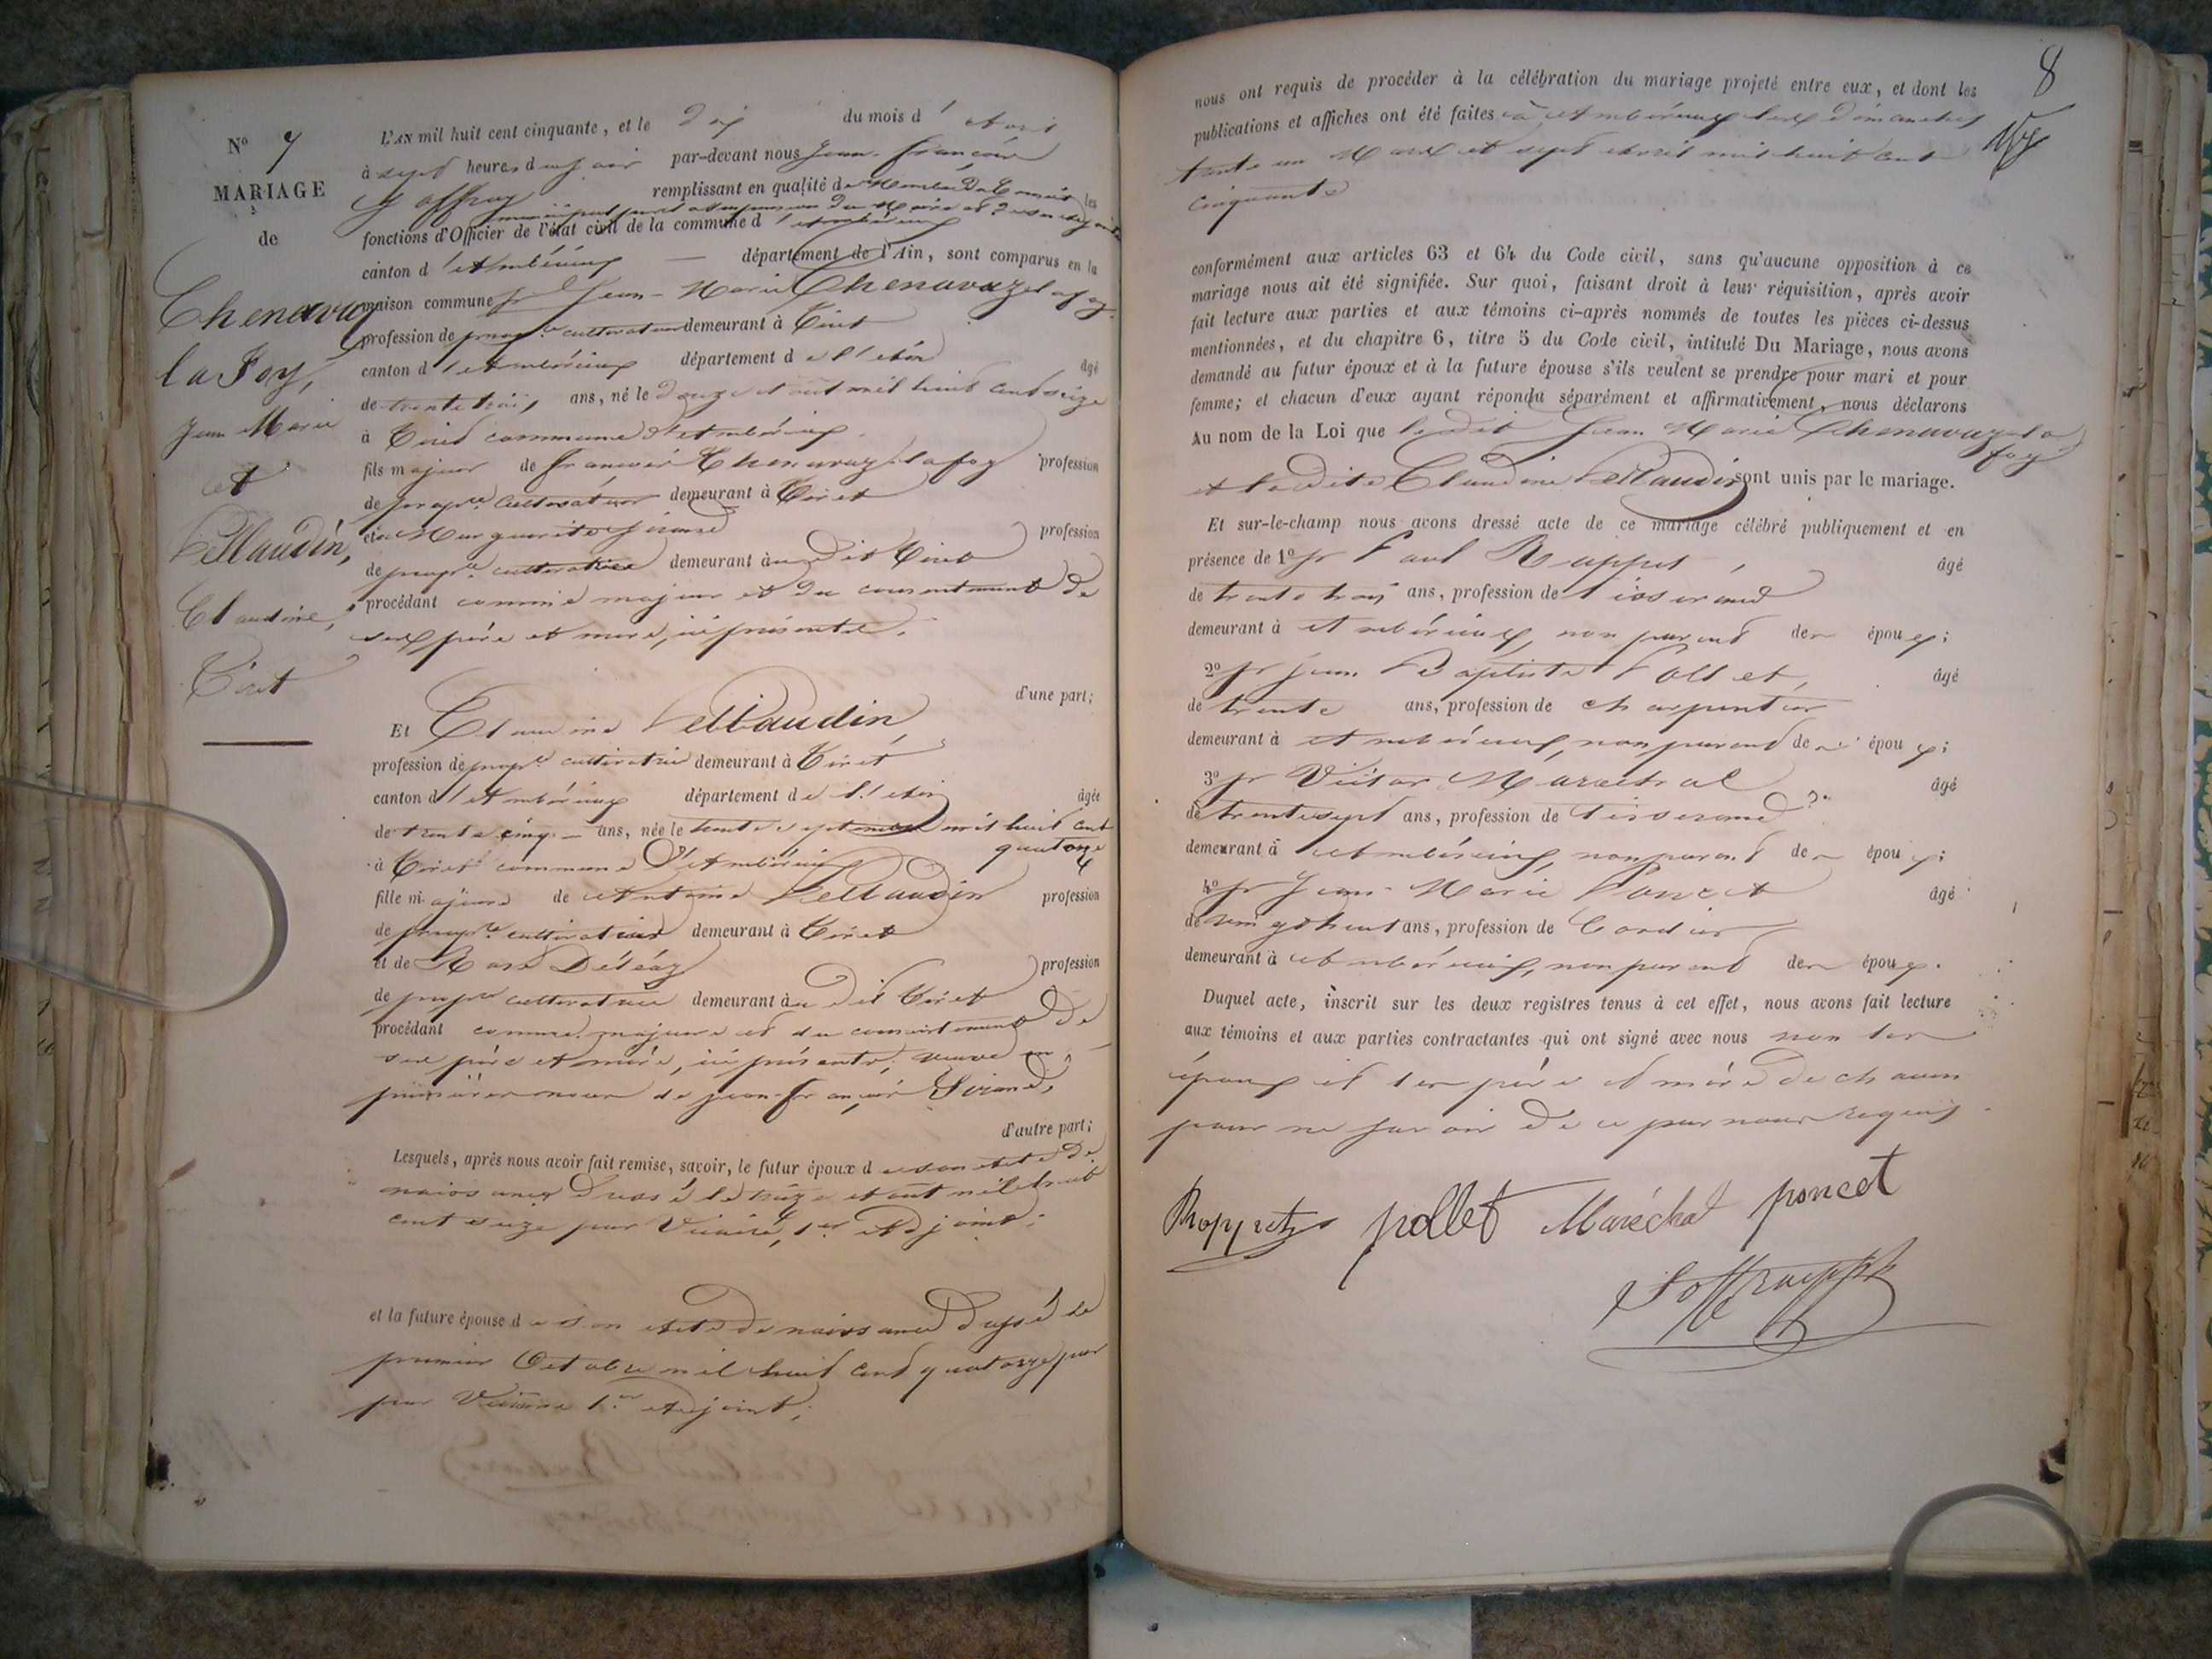 N° 7
MARIAGE
de
Chenavaz
la Foy,
Jean Marie
et
Pellaudin,
Claudine,
Tiret
L'AN mil huit cent cinquante, et le dix du mois d'Avril
à sept heures du soir par-devant nous Jean-françois
Joffray remplissant en qualité de Membre du Conseil
municipal les
fonctions d'Officier de l'état civil de la commune d'Ambérieux
canton d'Ambérieux département de l'Ain, sont comparus en la
maison commune Sr Jean-Marie Chenavaz lafoy
profession de propre cultivateur demeurant à Tiret
canton d'Ambérieux département de l'Ain âgé
de trente trois ans, né le douze Aout mil huit cent seize
à Tiret commune d'Ambérieux
fils majeur de françois Chenavaz-lafoy profession
de propre cultivateur demeurant à Tiret
et de Marguerite profession
de propre cultivatrice demeurant àu dit Tiret
procédant comme majeur et du consentement de
ses père et mère, ici présents.
d'une part;
Et Claudine Pellaudin,
profession de propre cultivatrice demeurant à Tiret
canton d'Ambérieux département de l'Ain âgée
de trente cinq ans, née le trente septembre mil huit cent
quatorze
à Tiret commune d'Ambérieux
fille majeure de Antoine Pellaudin profession
de propre cultivateur demeurant à Tiret
et de Rose Déléaz profession
de propre cultivatrice demeurant àu dit Tiret
procédant comme majeure et du consentement de
ses père et mère, ici présents, veuve en
premières noces de jean-françois
d'autre part;
Lesquels, après nous avoir fait remise, savoir, le futur époux de son Acte de
naissance dressé le treize Aout mil huit
cent seize par 1er Adjoint;
et la future épouse de son Acte de naissance dressé le
premier Octobre mil huit cent quatorze par
par 1er Adjoint;
8
nous ont requis de procéder à la célébration du mariage projeté entre eux, et dont les
publications et affiches ont été faites à Ambérieux les dimanches
trente un Mars et sept Avril mil huit cent
cinquante
conformément aux articles 63 et 64 du Code civil, sans qu'aucune opposition à ce
mariage nous ait été signifiée. Sur quoi, faisant droit à leur réquisition, après avoir
fait lecture aux parties et aux témoins ci-après nommés de toutes les pièces ci-dessus
mentionnées, et du chapitre 6, titre 5 du Code civil, intitulé Du Mariage, nous avons
demandé au futur époux et à la future épouse s'ils veulent se prendre pour mari et pour
femme; et chacun d'eux ayant répondu séparément et affirmativement, nous déclarons
Au nom de la Loi que ledit Jean Marie Chenavaz la
foy
et ladite Claudine Pellaudin sont unis par le mariage.
Et sur-le-champ nous avons dressé acte de ce mariage célébré publiquement et en
présence de 1° Sr Paul Ruppet, âgé
de trente trois ans, profession de tisserand
demeurant à Ambérieux, non parent des époux;
2° Sr Jean Baptiste Pollet, âgé
de trente ans, profession de charpentier
demeurant à Ambérieux, non parent des époux;
3° Sr Victor Maréchal âgé
de trente sept ans, profession de tisserand
demeurant à Ambérieux, non parent des époux;
4° Sr Jean-Marie Poncet âgé
de vingt huit ans, profession de Cordier
demeurant à Ambérieux, non parent des époux.
Duquel acte, inscrit sur les deux registres tenus à cet effet, nous avons fait lecture
aux témoins et aux parties contractantes qui ont signé avec nous non les
époux et les père et mère de chacun
pour ne savoir de ce par nous requis
pollet Maréchal poncet